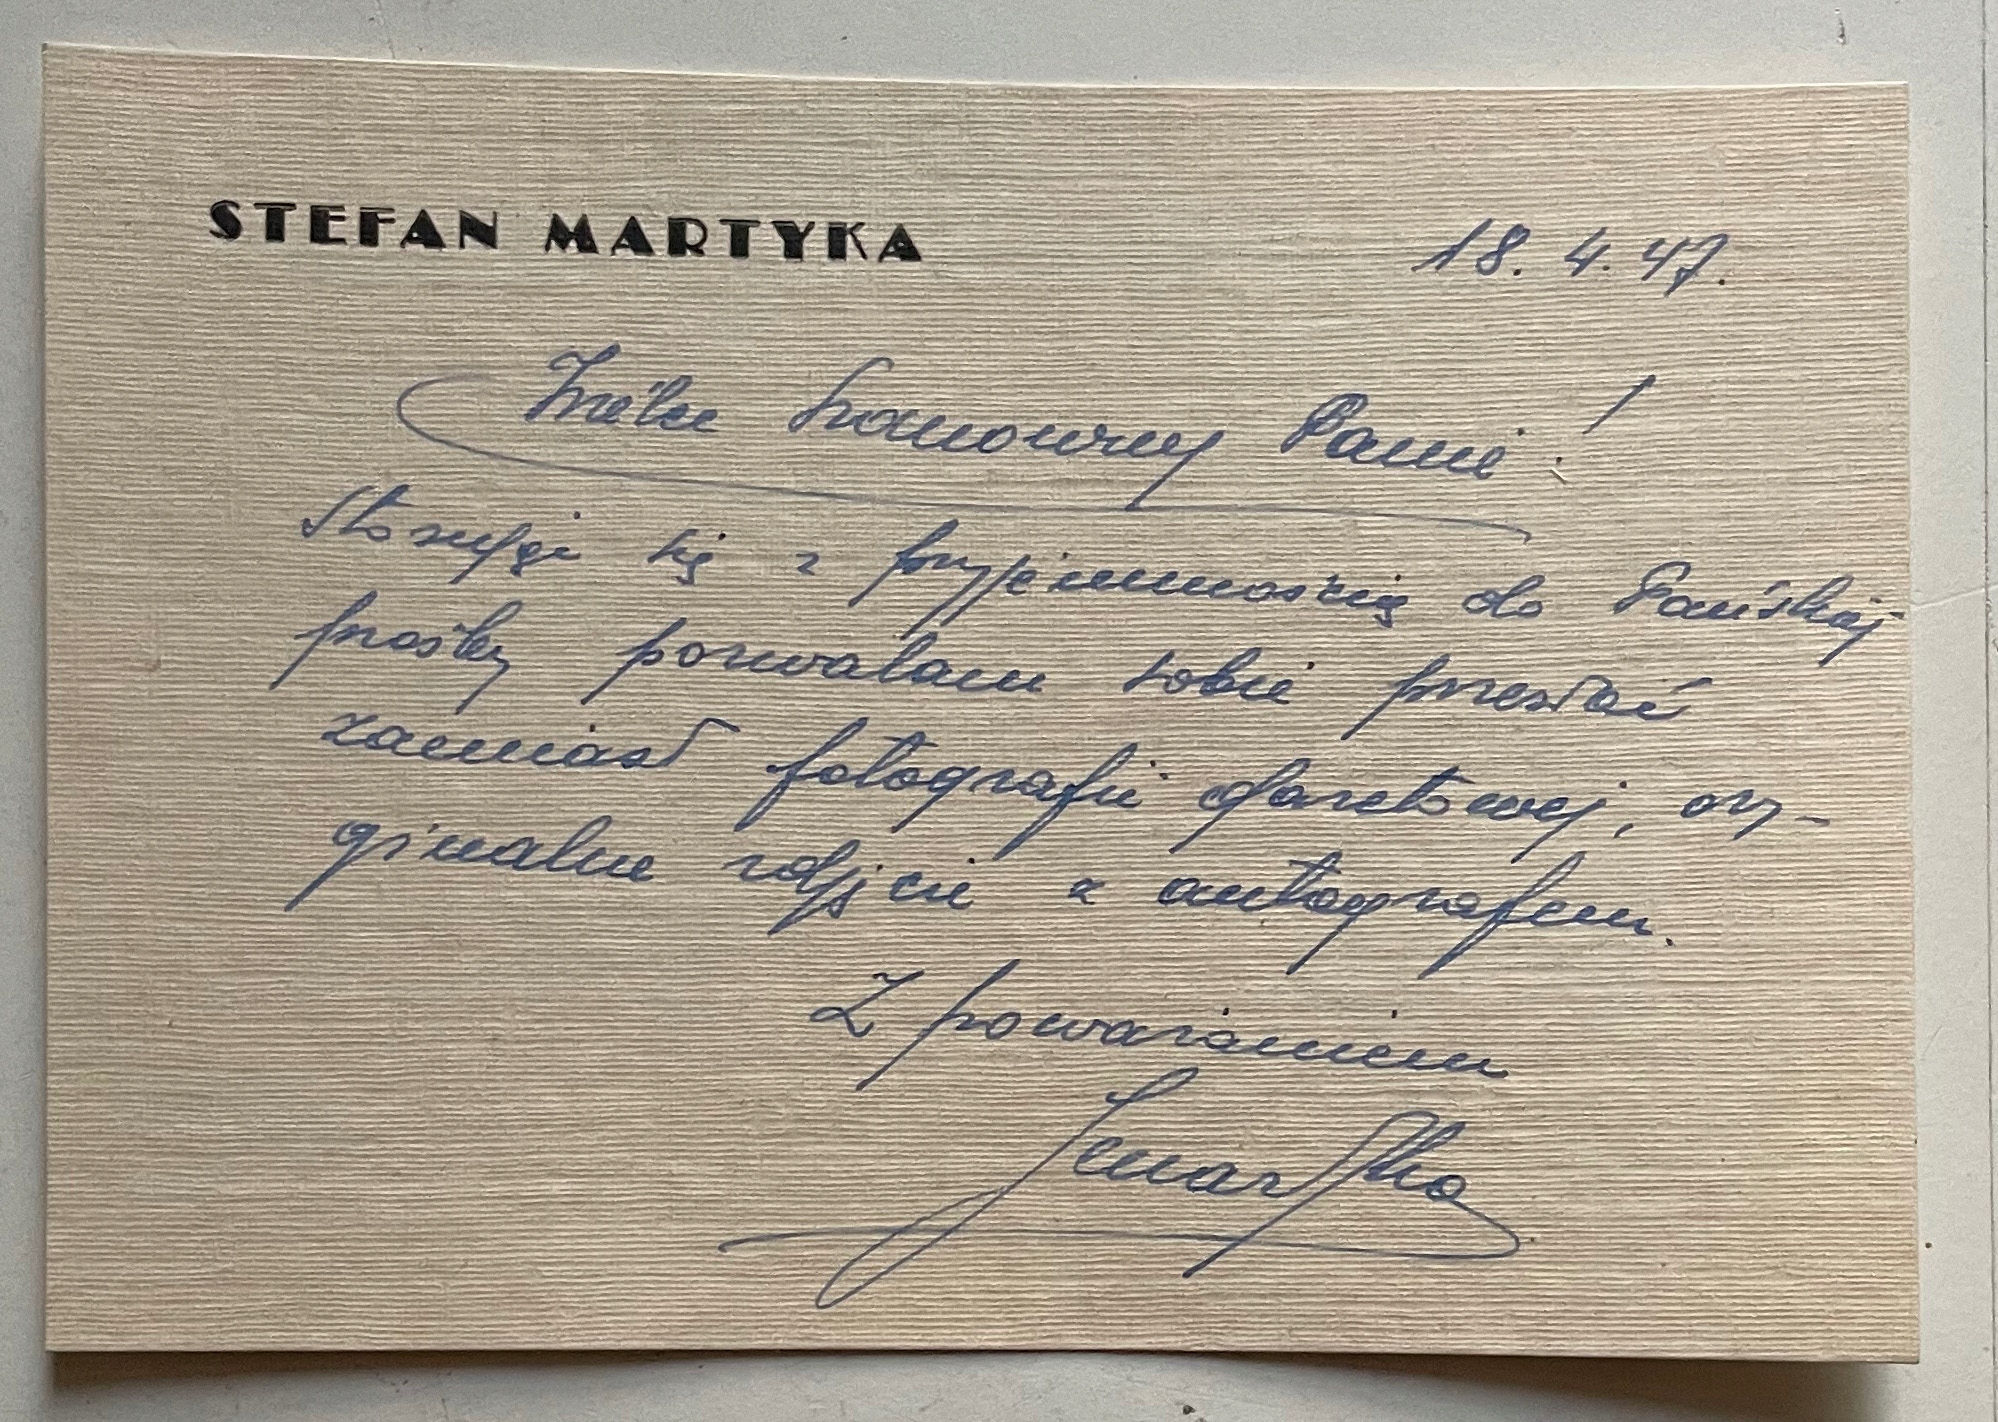 STEFAN MARTYKA
18. 4. 47.
Wielce Szanowny Panie!
Stosując się z przyjemnością do Pańskiej
prośby pozwalam sobie przesłać
zamiast fotografii gazetowej, ory-
ginalne zdjęcie z autografem.
Z poważaniem
SMartyka